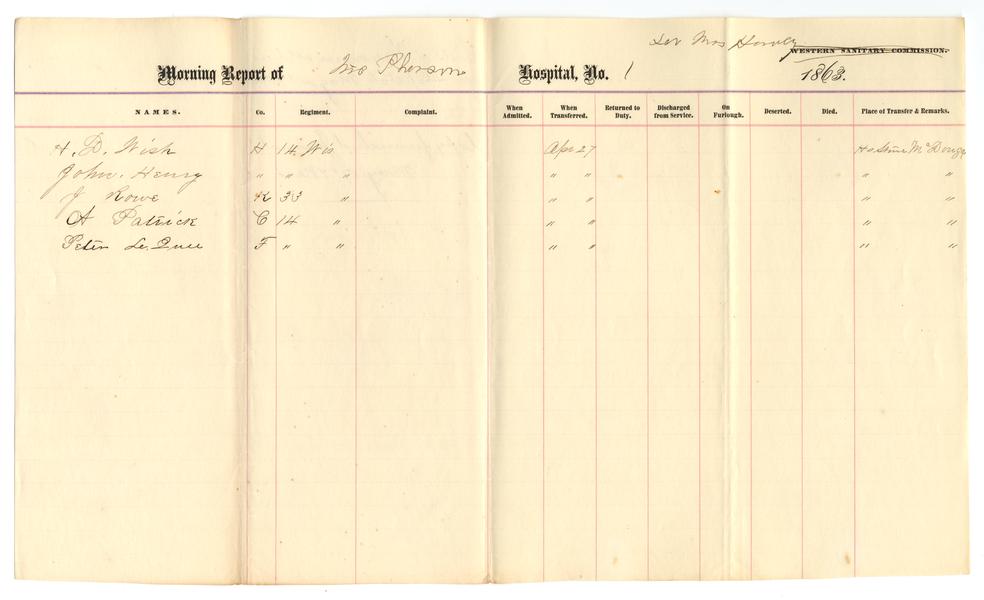 for Mrs Harvey
WESTERN SANITARY COMMISSION.
Morning Report of Mc Pherson Hospital, No. 1 1863.
NAMES. Co. Regiment. Complaint. When Admitted. When Transferred. Returned to Duty. Discharged from Service. On Furlough. Deserted. Died. Place of Transfer & Remarks.
H. D. Wish H 14 Wis Apr 27 McDouga
John Henry " " " " " " "
J Rowe K 33 " " " " "
A Patrick C 14 " " " " "
Peter La Que F " " " " " "